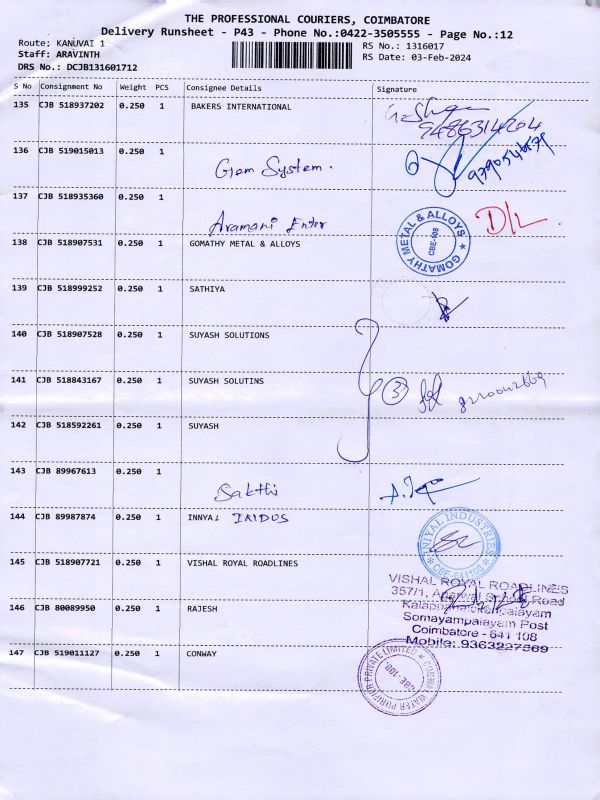 THE PROFESSIONAL COURIERS, COIMBATORE
Delivery Runsheet - P43 - Phone No.:0422-3505555 - Page No.:12
Route: KANUVAI 1
RS No.: 1316017
Staff: ARAVINTH
RS Date: 03-Feb-2024
DRS No.: DCJB131601712
S No Consignment No Weight PCS Consignee Details Signature
135 CJB 518937202 0.250 1 BAKERS INTERNATIONAL
9486314204
136 CJB 519015013 0.250 1
Gem System.
137 CJB 518935360 0.250 1
Aramani Enter
D/L
138 CJB 518907531 0.250 1 GOMATHY METAL & ALLOYS
GOMATHY METAL & ALLOYS
CBE-108
139 CJB 518999252 0.250 1 SATHIYA
140 CJB 518907528 0.250 1 SUYASH SOLUTIONS
141 CJB 518843167 0.250 1 SUYASH SOLUTINS
3
142 CJB 518592261 0.250 1 SUYASH
143 CJB 89967613 0.250 1
Sakthi
144 CJB 89987874 0.250 1 INNYAL
INIYAL INDUSTRIES
CBE-641108
145 CJB 518907721 0.250 1 VISHAL ROYAL ROADLINES
VISHAL ROYAL ROADLINES
357/1, School Road
Somayampalayam Post
Coimbatore - 641 108
Mobile: 9363227569
146 CJB 80089950 0.250 1 RAJESH
147 CJB 519011127 0.250 1 CONWAY
WATER PURIFIER PRIVATE LIMITED
CBE-108